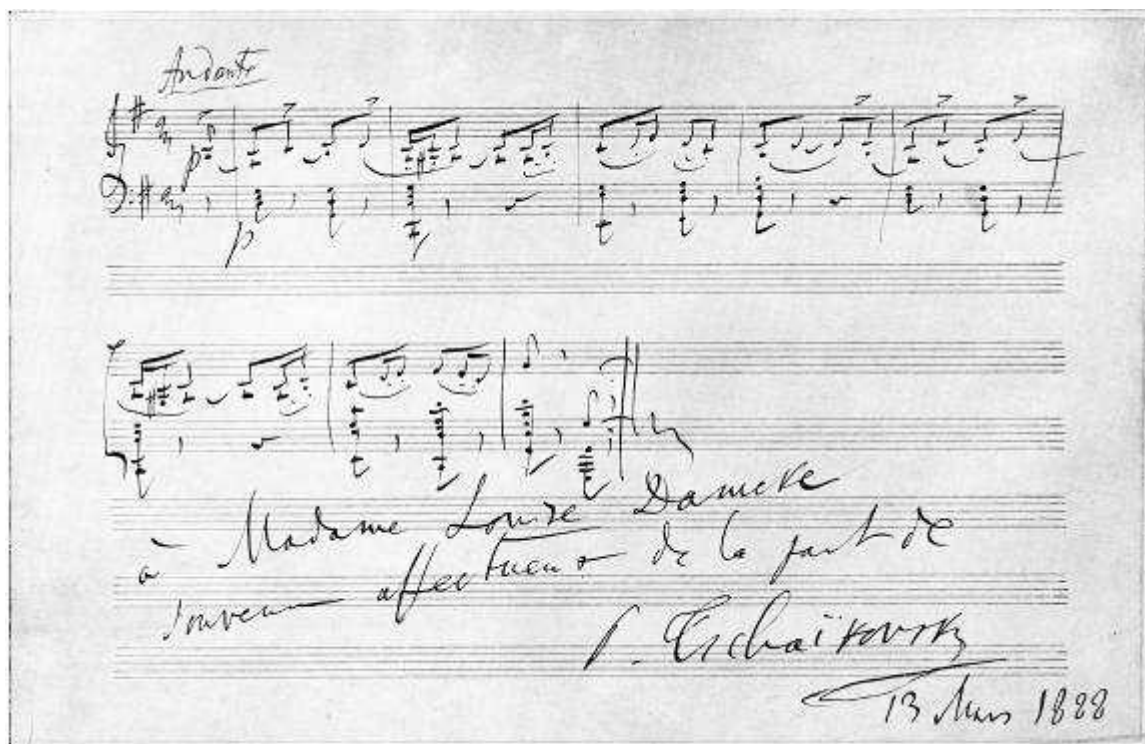 Andante
p
p
à Madame Louise Damcke
souvenir affectueux de la part de
P. Tschaïkovsky
13 Mars 1888